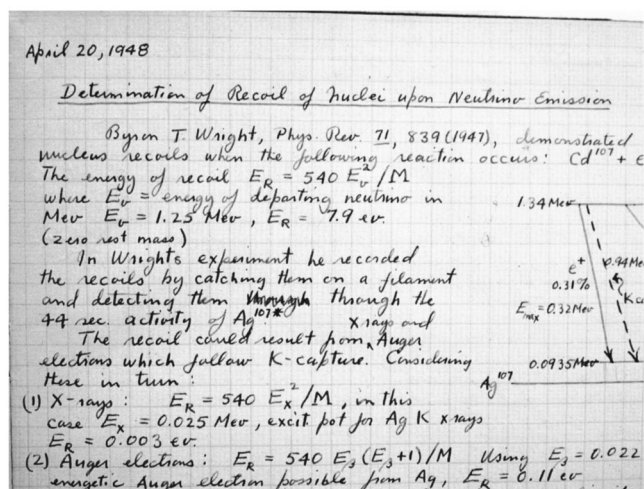 April 20, 1948
Determination of Recoil of Nuclei upon Neutrino Emission
Byron T. Wright, Phys. Rev. 71, 839 (1947), demonstrated
nucleus recoils when the following reaction occurs: Cd¹⁰⁷ + e
The energy of recoil E_R = 540 E_ν²/M
where E_ν = energy of departing neutrino in
Mev E_ν = 1.25 Mev, E_R = 7.9 ev.
(zero rest mass)
In Wrights experiment he recorded
the recoils by catching them on a filament
and detecting them through the
44 sec. activity of Ag¹⁰⁷*
x rays and
The recoil could result from ‸ Auger
electrons which follow K-capture. Considering
these in turn:
(1) X-rays: E_R = 540 E_x²/M, in this
case E_x = 0.025 Mev, excit pot for Ag K x rays
E_R = 0.003 ev.
(2) Auger electrons: E_R = 540 E_β (E_β+1)/M Using E_β = 0.022
energetic Auger electron possible from Ag, E_R = 0.11 ev
1.34 Mev
e⁺
0.31%
E_max = 0.32 Mev
0.94 Me
K ca
0.0935 Mev
Ag¹⁰⁷